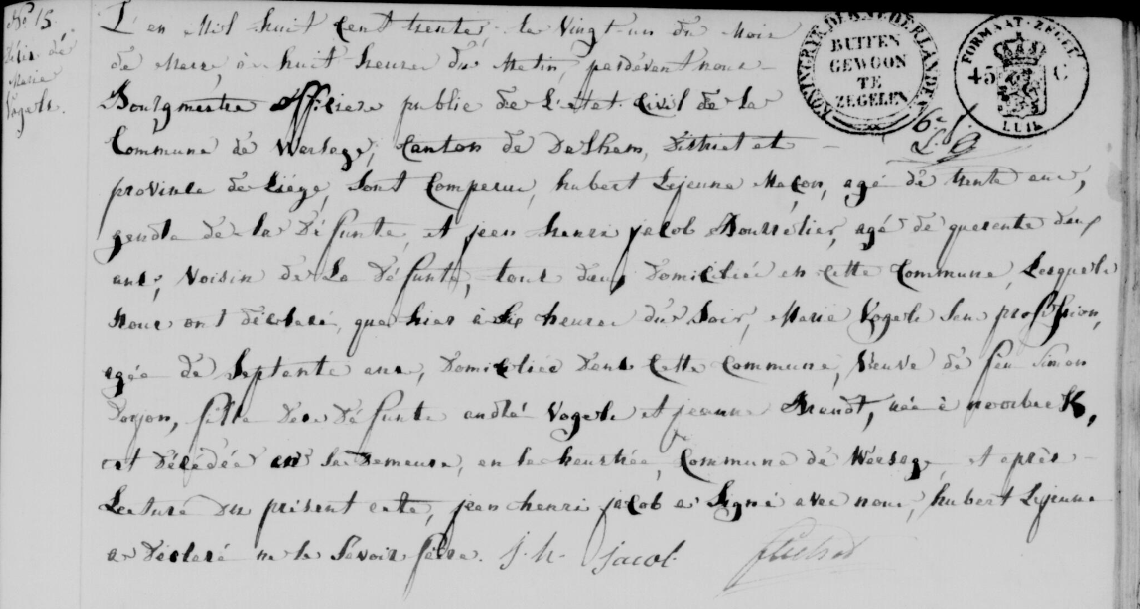 No 15.
Décès de
Marie
Vogels.
L'en Mil huit Cent trente, le Vingt-un du Mois
de Mars, à huit heures du Matin, pardevant nous
Bourgmestre officiers public de L'etat-Civil de la
Commune de Warsage, Canton de Dalhem, District et
province de Liége, Sont Comparus, hubert Lejeune Maçon, agé de trente ans,
gendre de la défunte, et jean henri jacob Bourrélier, agé de quarente deux
ans, Voisin de La défunte, tous deux domiciliés en cette Commune, Lesquels
Nous ont déclaré, que hier à Six heures du Soir, Marie Vogels Sans profession,
agée de Septante ans, domiciliée dans Cette Commune, Veuve de feu Simon
fille des défunts andré Vogels et jeanne née à
est décédée en Sa demeure, en la heuchée, Commune de Warsage, et après
Lecture du présent acte, jean henri jacob a Signé avec nous, hubert Lejeune
a déclaré ne le Savoir faire. J. h. jacob.
KONINGRYK DER NEDERLANDEN
BUITEN
GEWOON
TE
ZEGELEN
FORMAAT-ZEGEL
45 C
LUIK